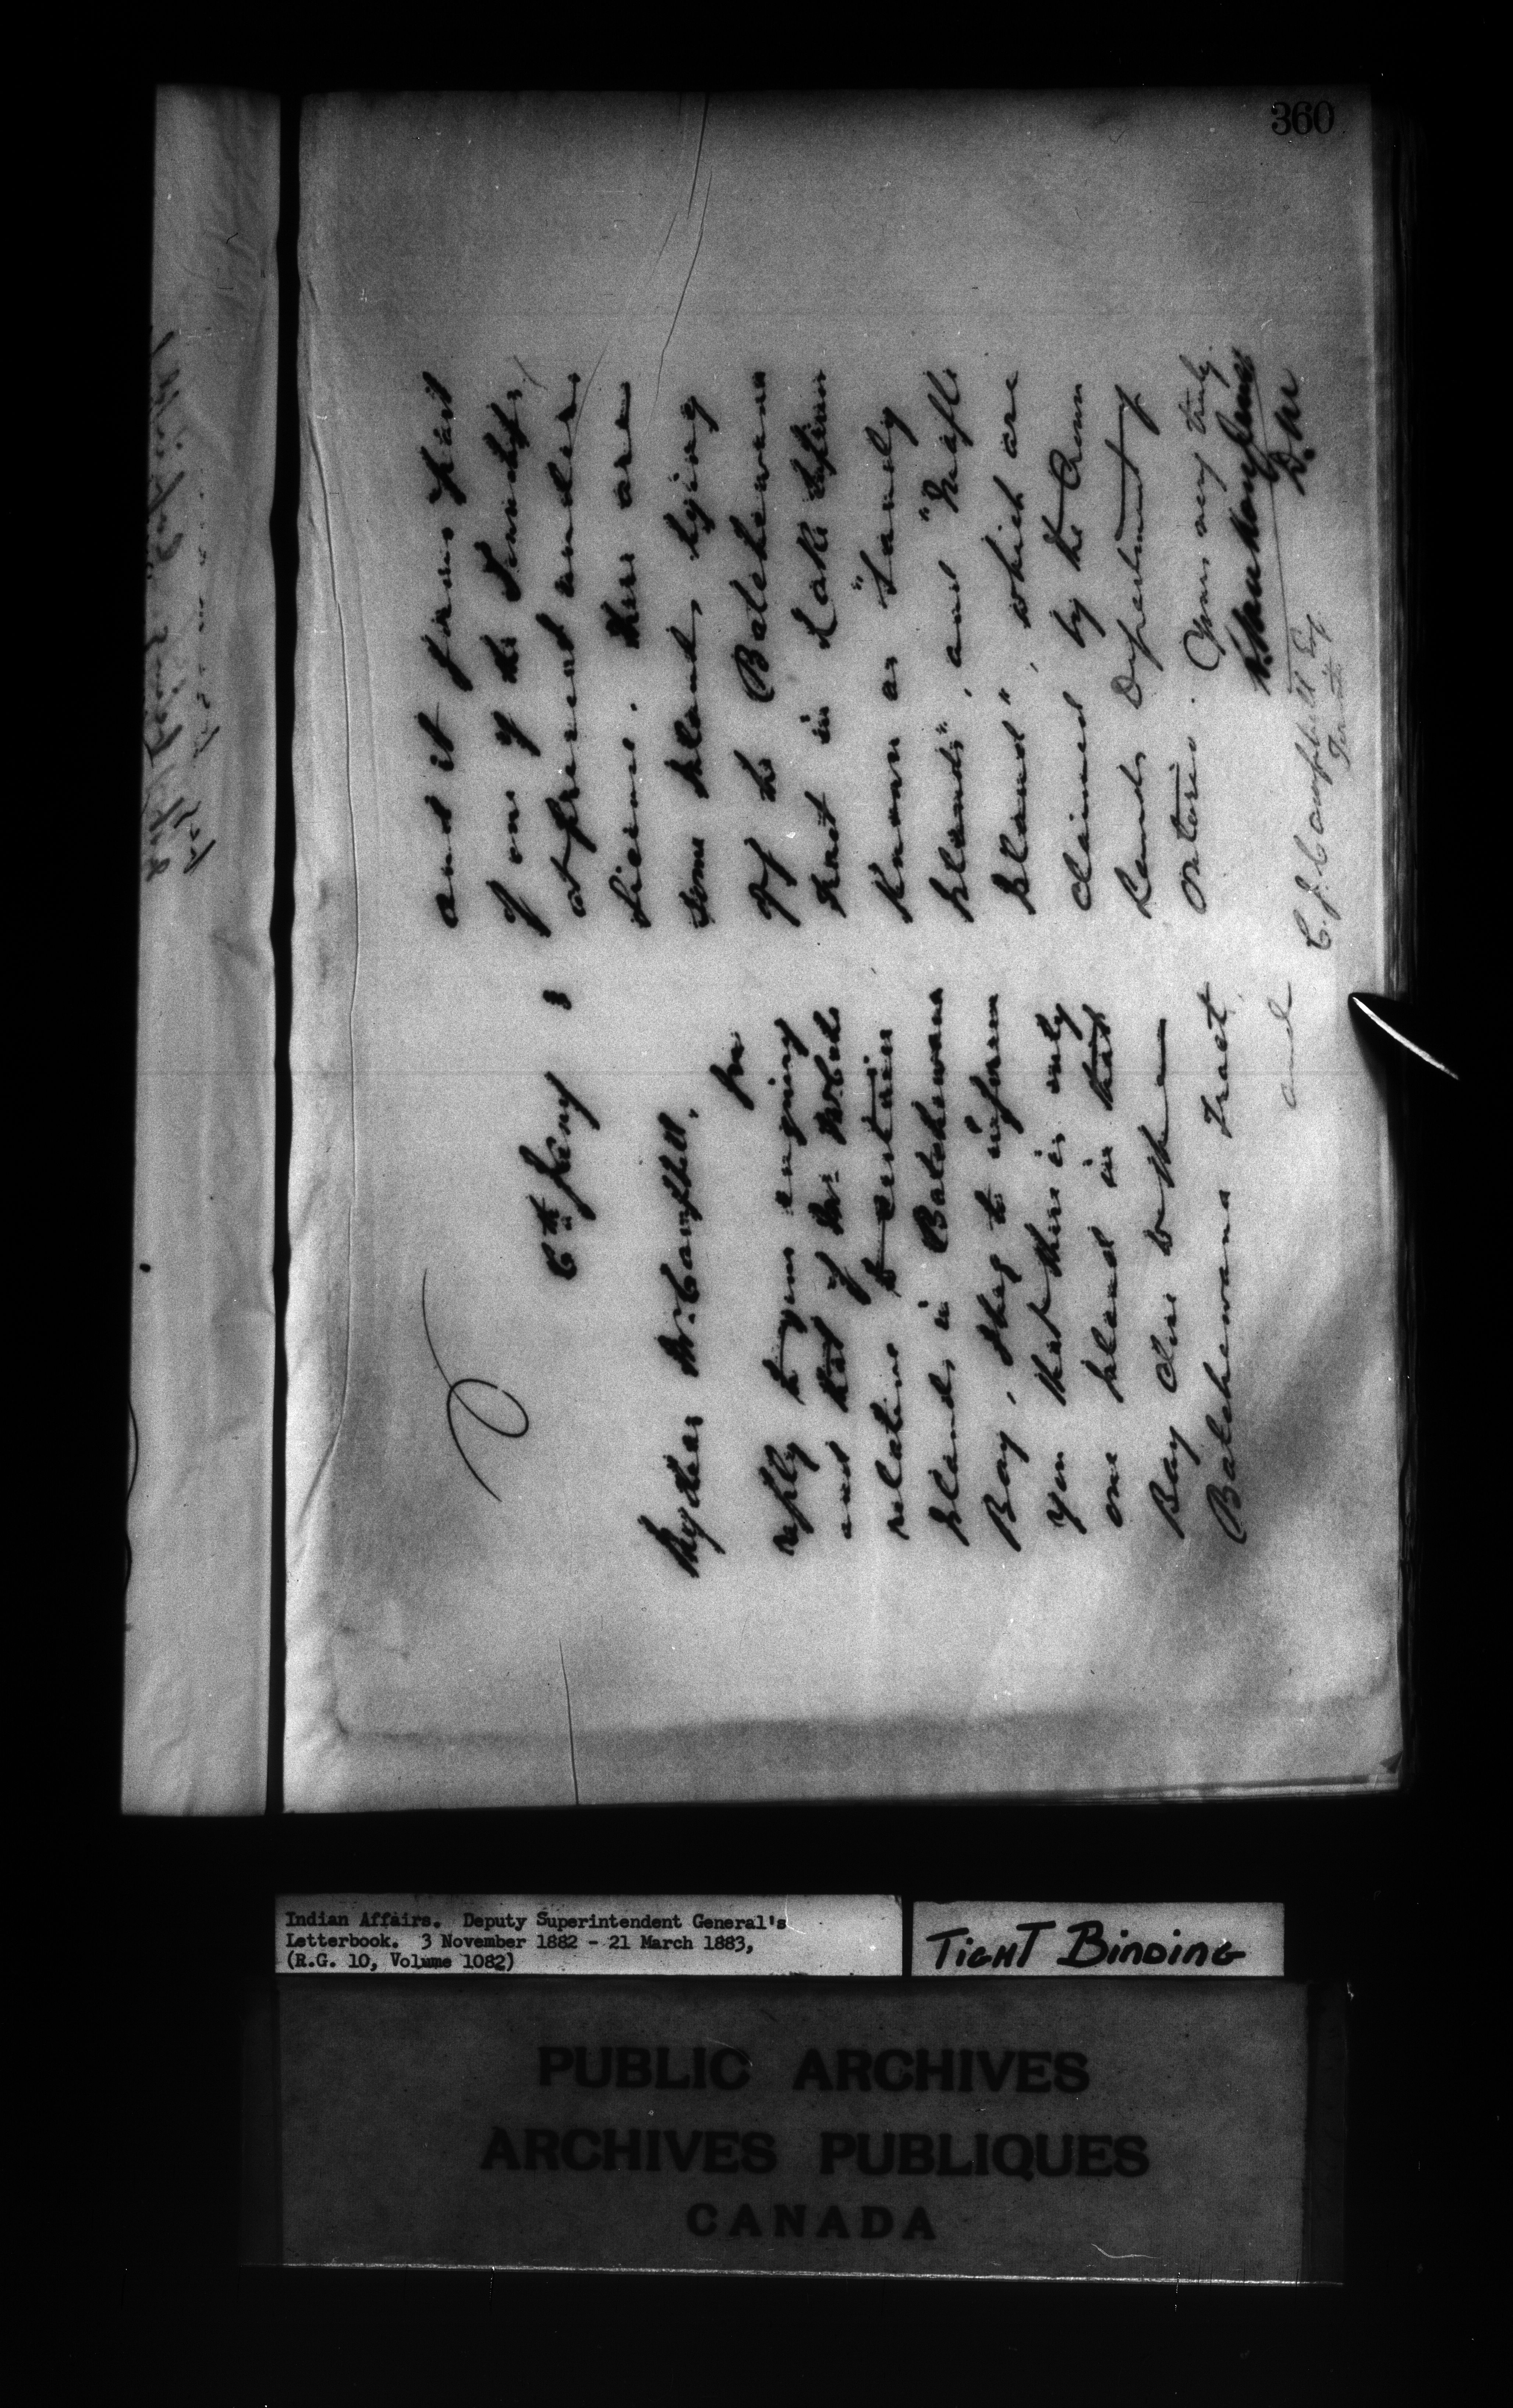 360
6th Jany 3
My dear Mr. Campbell,
In
reply to yours enquiring
and that of Mr.
relative to certain
Islands in Batchewana
Bay, I beg to inform
you that there is only
one Island in that
Bay close to the
Batchewana Tract
and
and it forms part
of one of the Townships
at present under
license. There are
some Islands lying
off the Batchewana
Tract in Lake Superior
known as "Sandy
Islands", and "Maple
Island", which are
claimed by the Crown
Lands Department of
Ontario. Yours very truly
L. Vankoughnet
D.M.
C. J. Campbell Esq
Toronto
Indian Affairs. Deputy Superintendent General's
Letterbook. 3 November 1882 - 21 March 1883,
(R.G. 10, Volume 1082)
TIGHT BINDING
PUBLIC ARCHIVES
ARCHIVES PUBLIQUES
CANADA